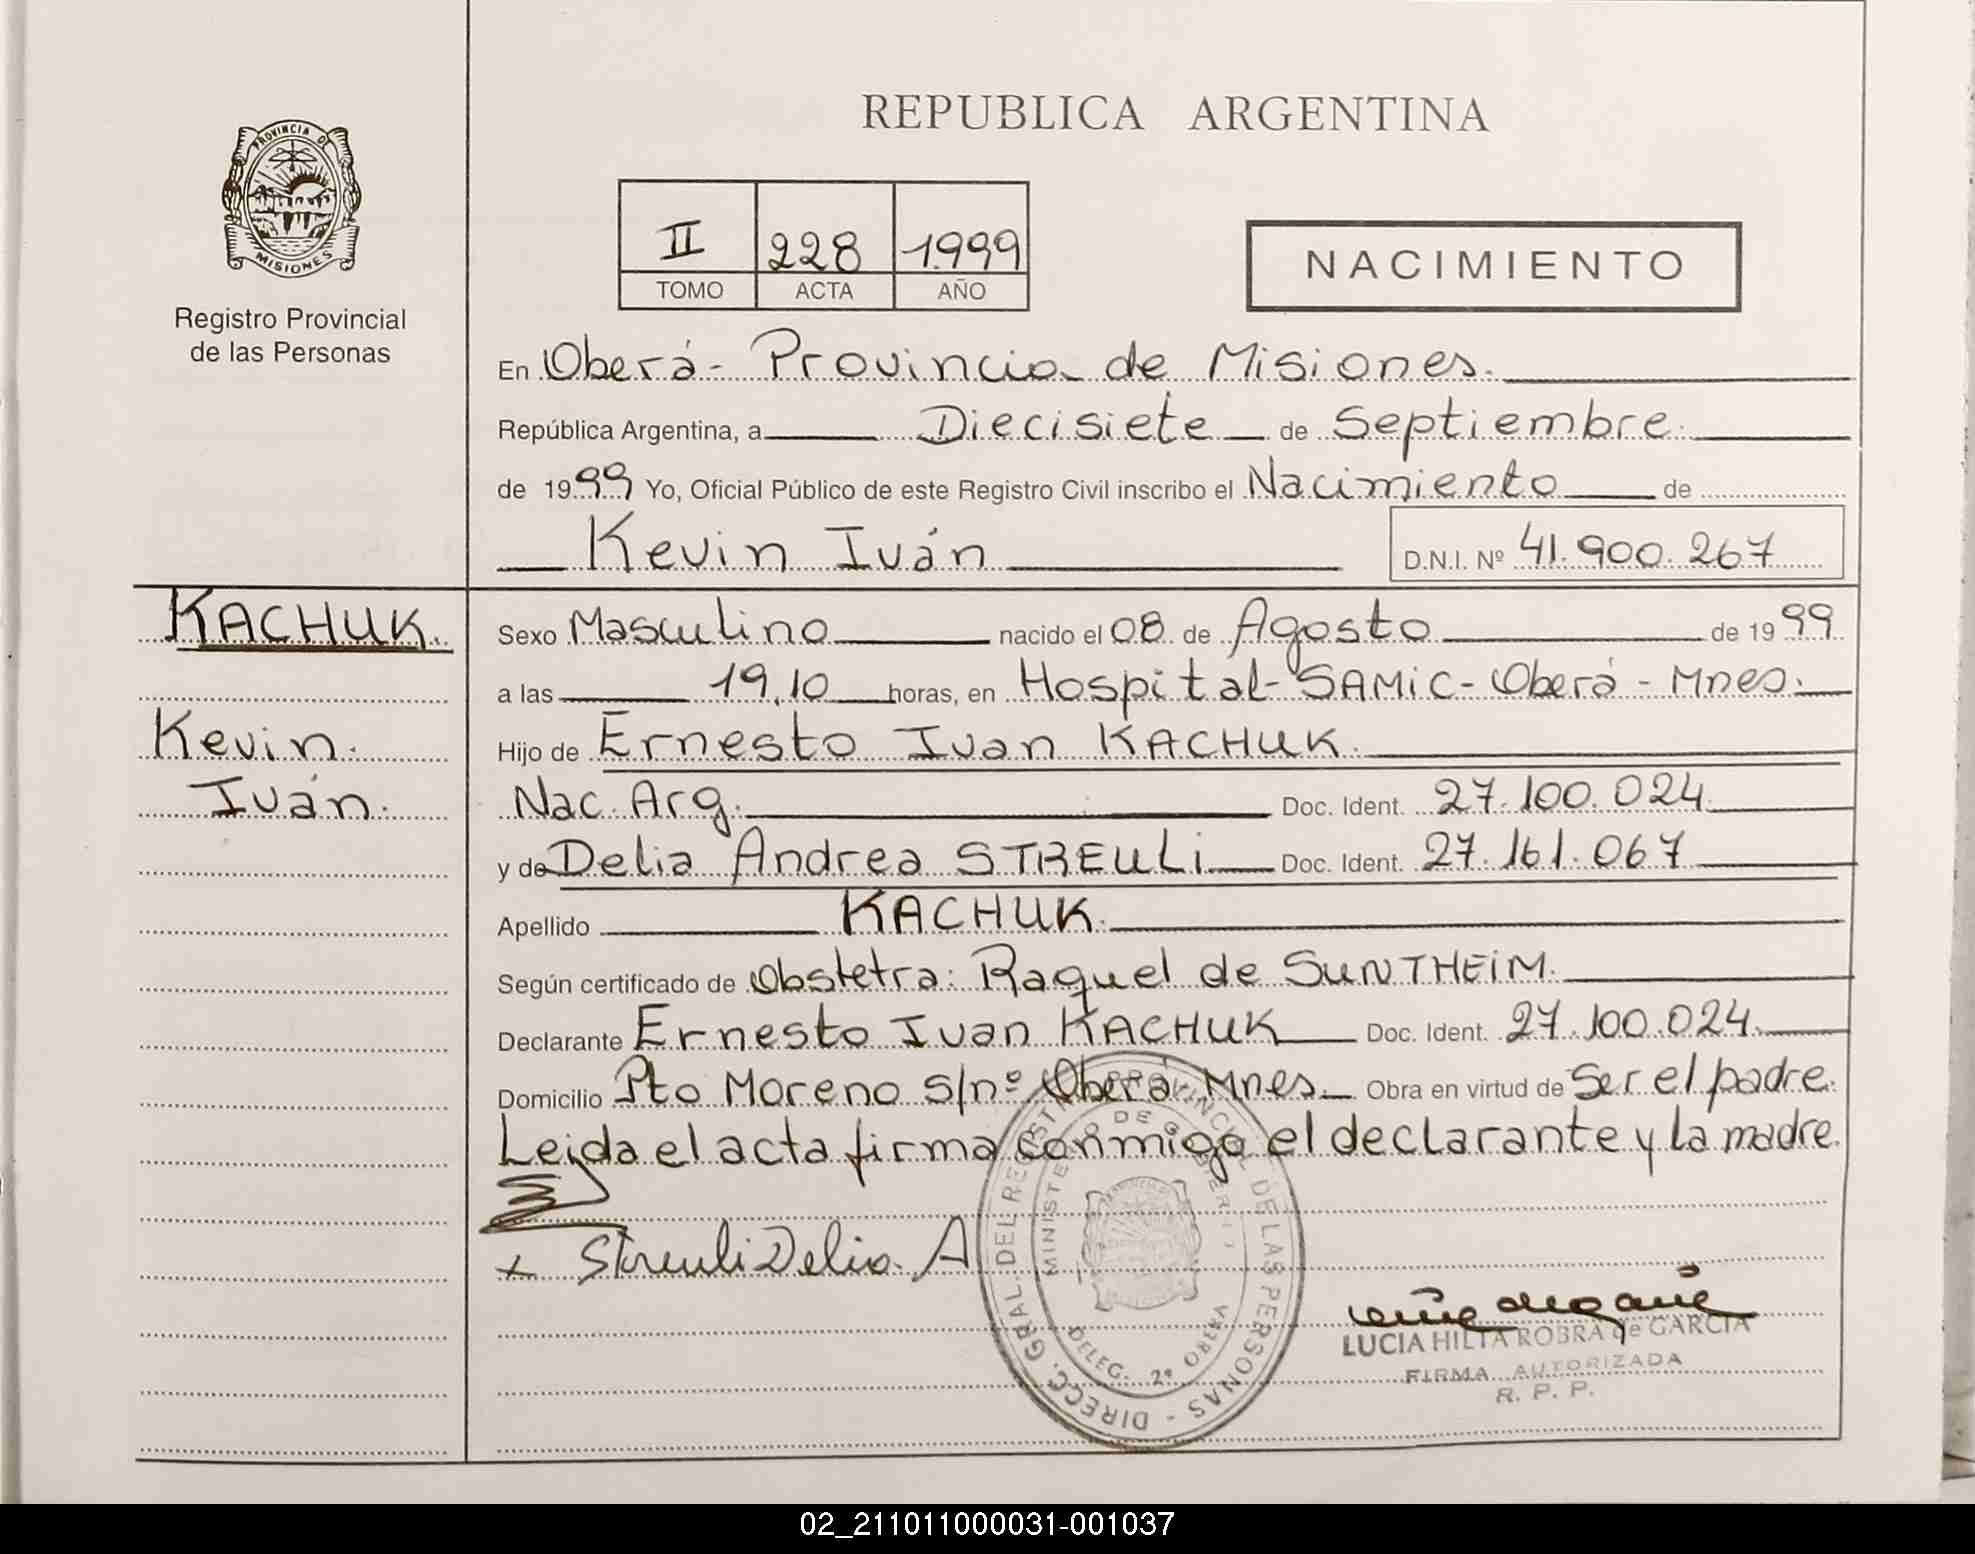 REPUBLICA ARGENTINA
PROVINCIA DE
MISIONES
Registro Provincial
de las Personas
II 228 1.999
TOMO ACTA AÑO
NACIMIENTO
En Oberá - Provincia de Misiones.
República Argentina, a Diecisiete de Septiembre.
de 1999 Yo, Oficial Público de este Registro Civil inscribo el Nacimiento de
Kevin Iván D.N.I. Nº 41.900.267
KACHUK.
Kevin.
Iván.
Sexo Masculino nacido el 08 de Agosto de 1999
a las 19,10 horas, en Hospital- SAMIC - Oberá - Mnes.
Hijo de Ernesto Ivan KACHUK.
Nac. Arg. Doc. Ident. 27.100.024
y de Delia Andrea STREULI Doc. Ident. 27.161.067
Apellido KACHUK.
Según certificado de Obstetra: Raquel de SUNTHEIM.
Declarante Ernesto Ivan KACHUK Doc. Ident. 27.100.024
Domicilio Pto Moreno s/nº Oberá- Mnes. Obra en virtud de Ser el padre.
Leida el acta firma conmigo el declarante y la madre.
x Streuli Delia. A
DIRECC. GRAL. DEL REGISTRO PROVINCIAL DE LAS PERSONAS -
MINISTERIO DE GOBIERNO
DELEG. 2º OBERA
LUCIA HILTA ROBRA de GARCIA
FIRMA AUTORIZADA
R. P. P.
02_211011000031-001037